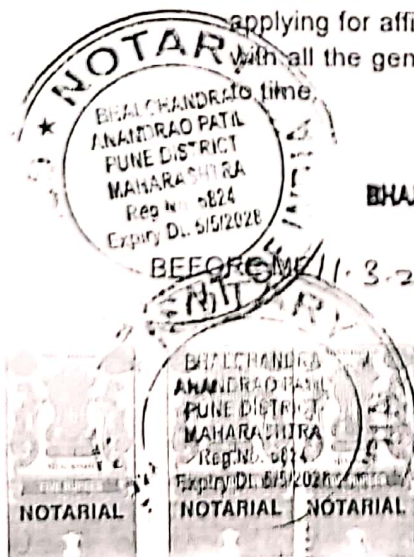 applying for affi
with all the gen
to time.
NOTARY
BHALCHANDRA
ANANDRAO PATIL
PUNE DISTRICT
MAHARASHTRA
Reg No. 6824
Expiry Dt. 5/5/2028
BHA
BEFORE ME
11.3.2
BHALCHANDRA
ANANDRAO PATIL
PUNE DISTRICT
MAHARASHTRA
Reg.No. 6824
Expiry Dt. 5/5/2028
FIVE RUPEES
NOTARIAL
NOTARIAL
NOTARIAL